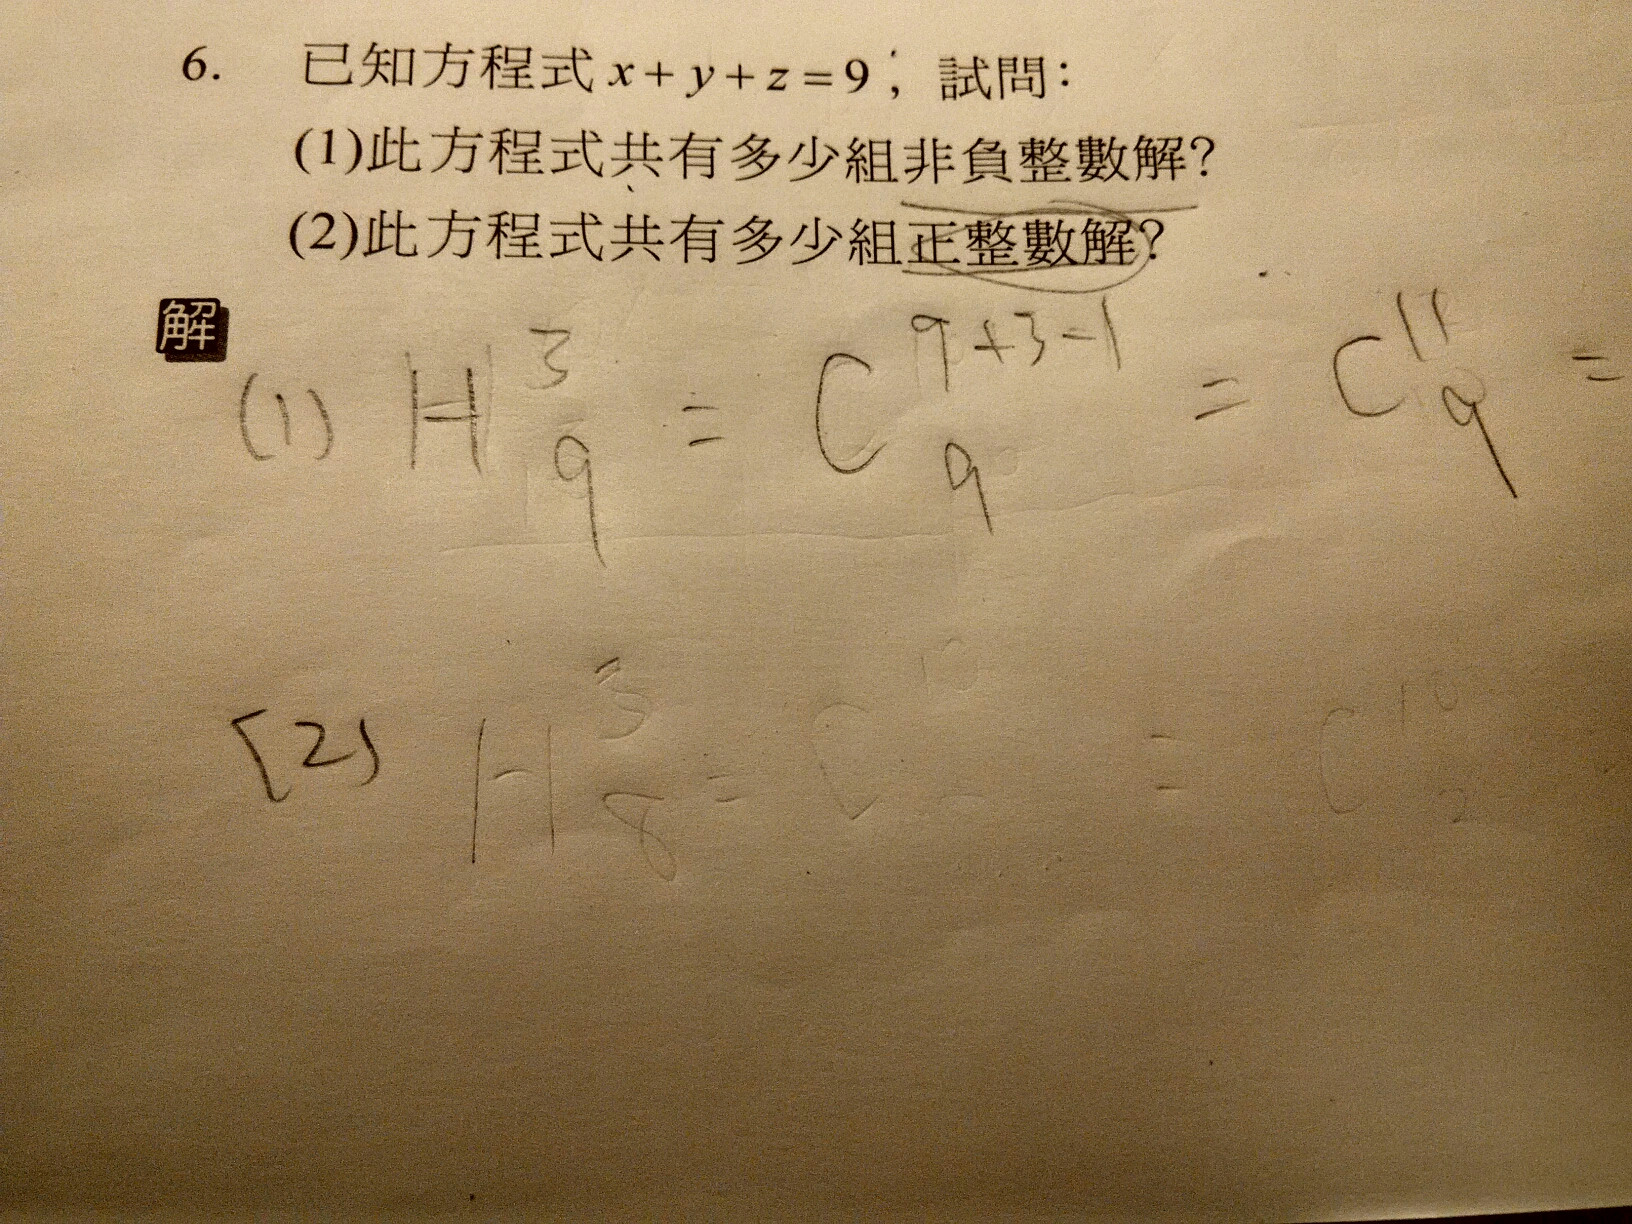 6. 已知方程式 x + y + z = 9，試問：
(1)此方程式共有多少組非負整數解？
(2)此方程式共有多少組正整數解？
解
(1) H³₉ = C⁹⁺³⁻¹₉ = C¹¹₉ =
(2) H³₈ = C¹⁰ = C¹⁰₂